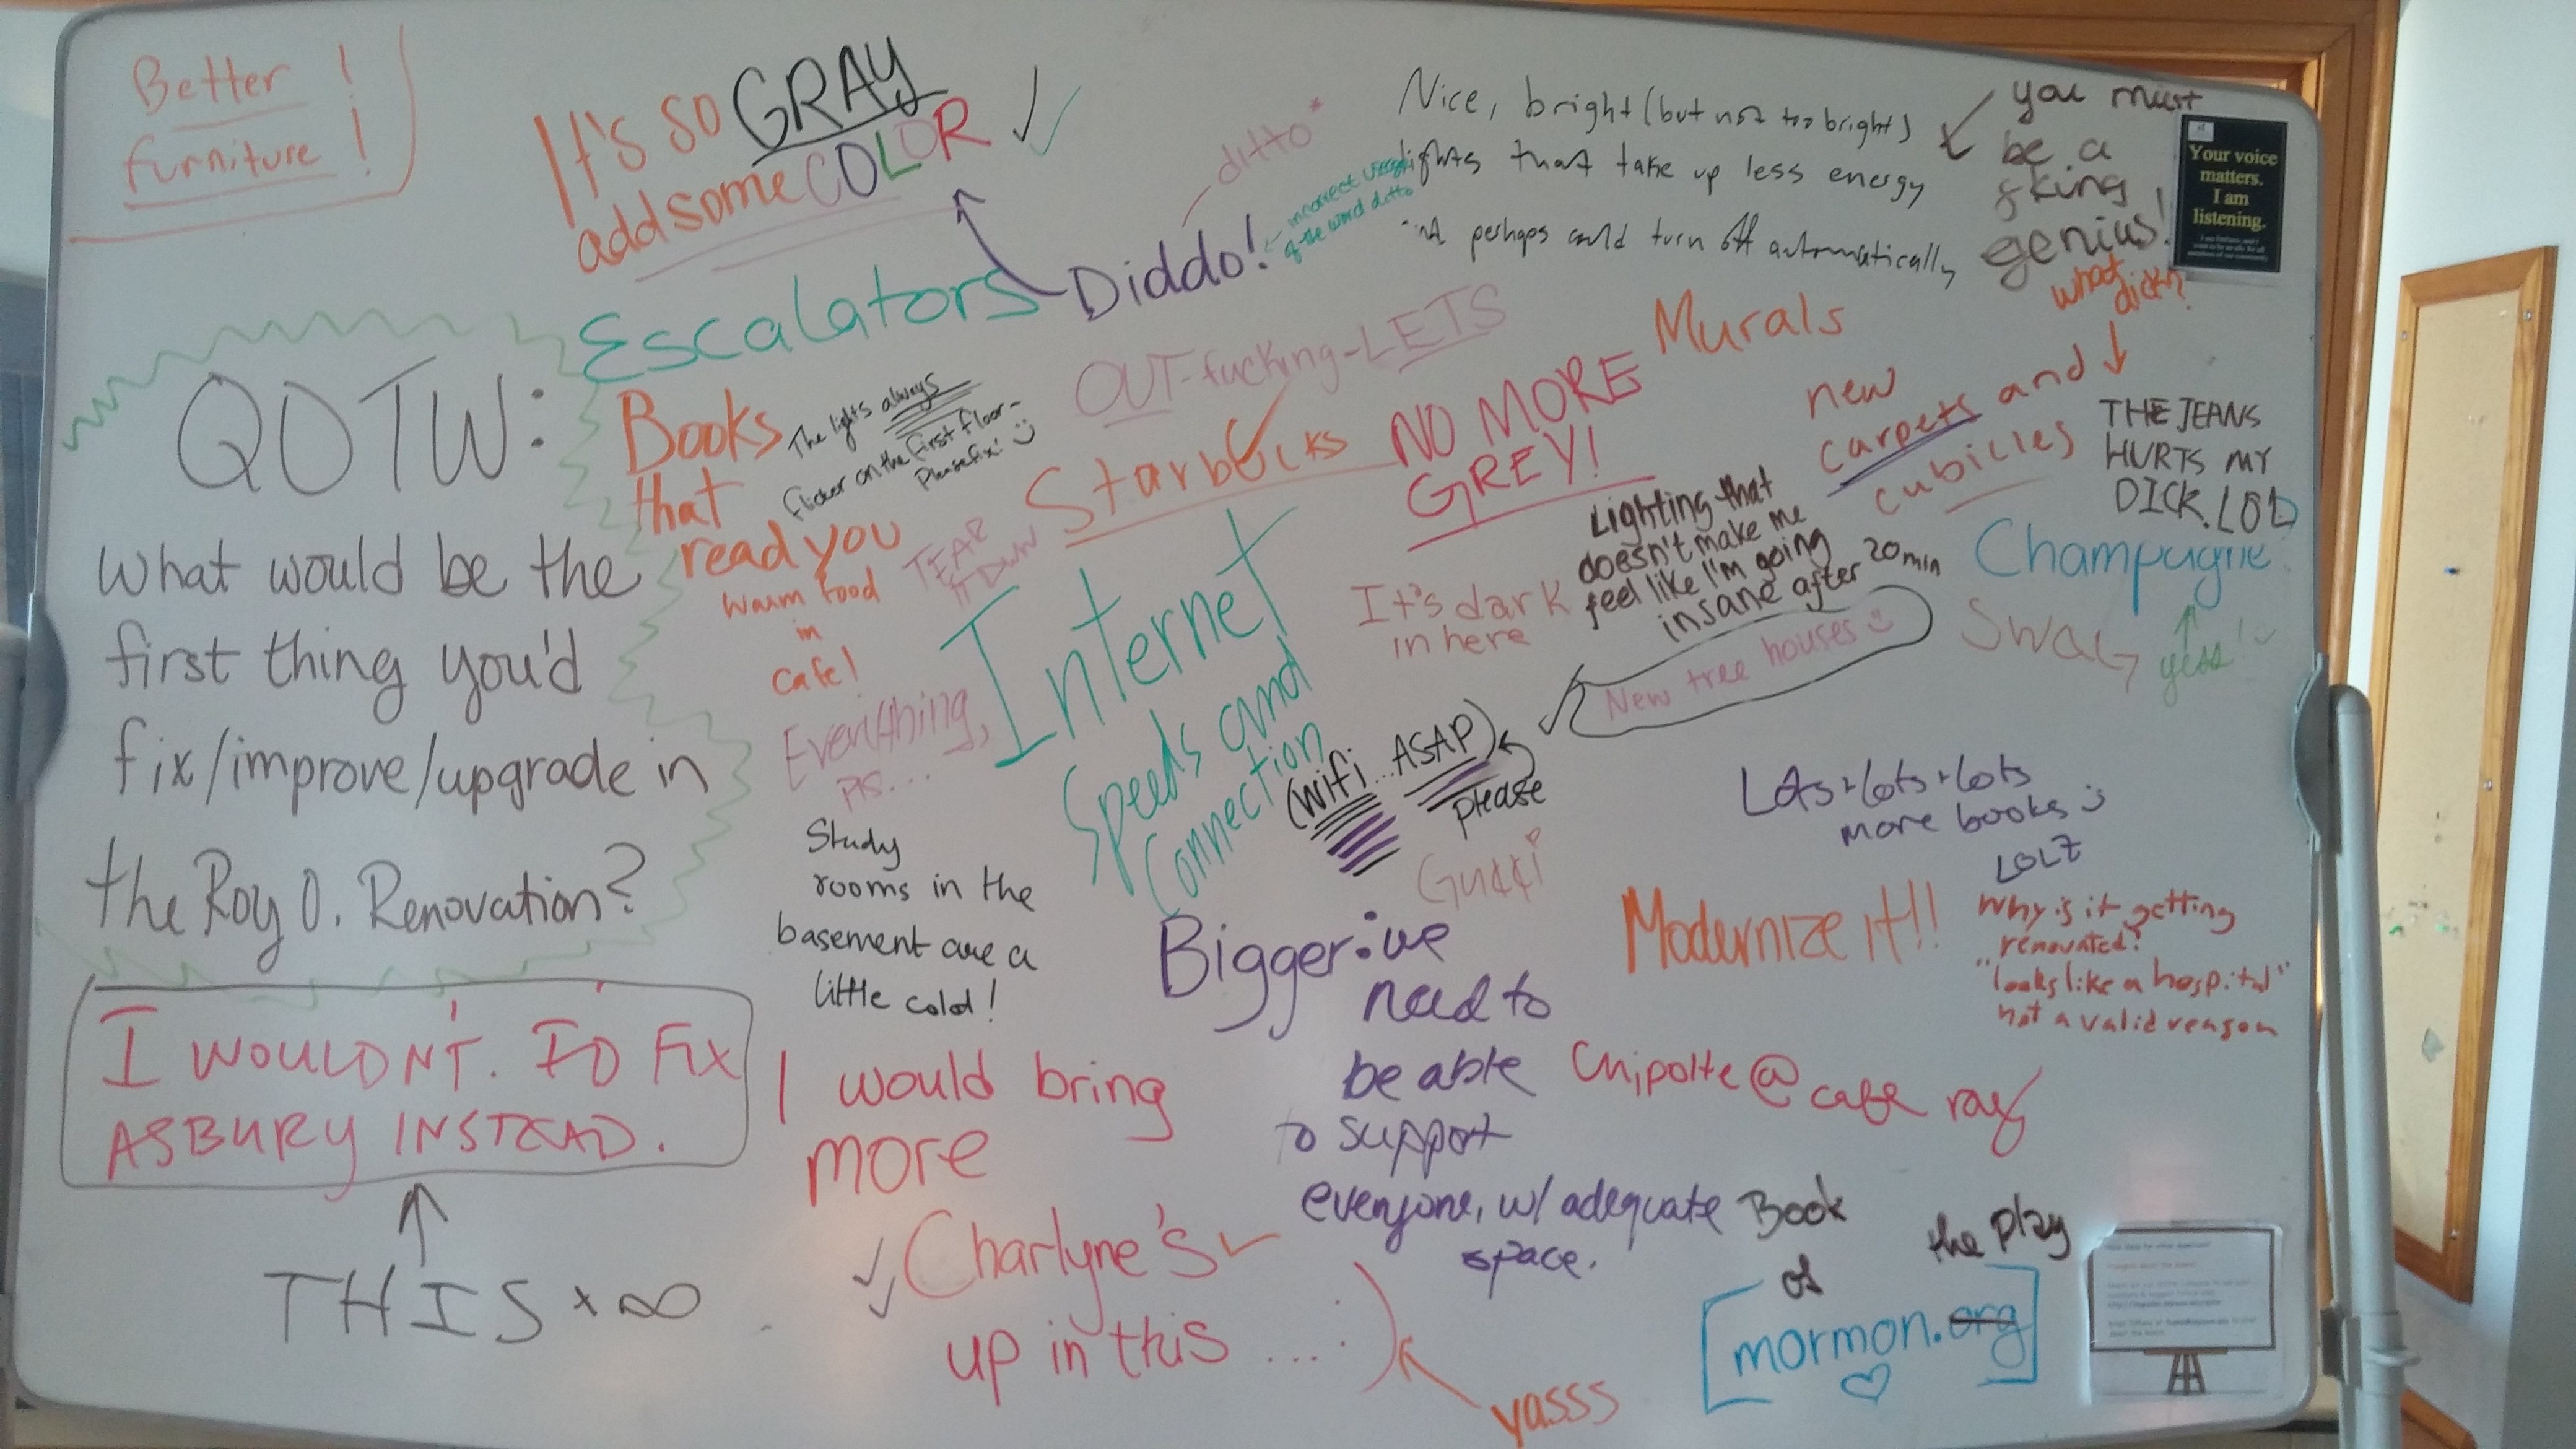 Better !
furniture !
It's so GRAY
add some COLOR
ditto*
Diddo!
incorrect usage
of the word ditto
Nice, bright (but not too bright)
lights that take up less energy
perhaps could turn off automatically
you must
be a
genius!
Your voice
matters.
I am
listening.
Escalators
OUT-fucking-LETS
Murals
what
dick?
QOTW:
What would be the
first thing you'd
fix/improve/upgrade in
the Roy O. Renovation?
Books
that
read you
The lights always
flicker on the first floor-
Please fix! :)
Starbucks
NO MORE
GREY!
new
carpets and
cubicles
THE JEANS
HURTS MY
DICK. LOL
TEAR
IT DOWN
warm food
in
cafe!
Internet
Speeds and
Connection
(Wifi... ASAP)
please
It's dark
in here
Lighting that
doesn't make me
feel like I'm going
insane after 20 min
Champagne
Swag
yess!
New tree houses :)
Everything,
pls....
Study
rooms in the
basement are a
little cold!
Gucci
Lots + lots + lots
more books :)
LOLZ
Modernize it!!
Why is it getting
renovated?
"looks like a hospital"
not a valid reason
Bigger: we
need to
be able
to support
everyone, w/ adequate
space.
I WOULDN'T. I'D FIX
ASBURY INSTEAD.
THIS × ∞
I would bring
more
Charlyne's
up in this ....
yasss
Chipolte @ cafe roy
Book
of
the play
mormon.org